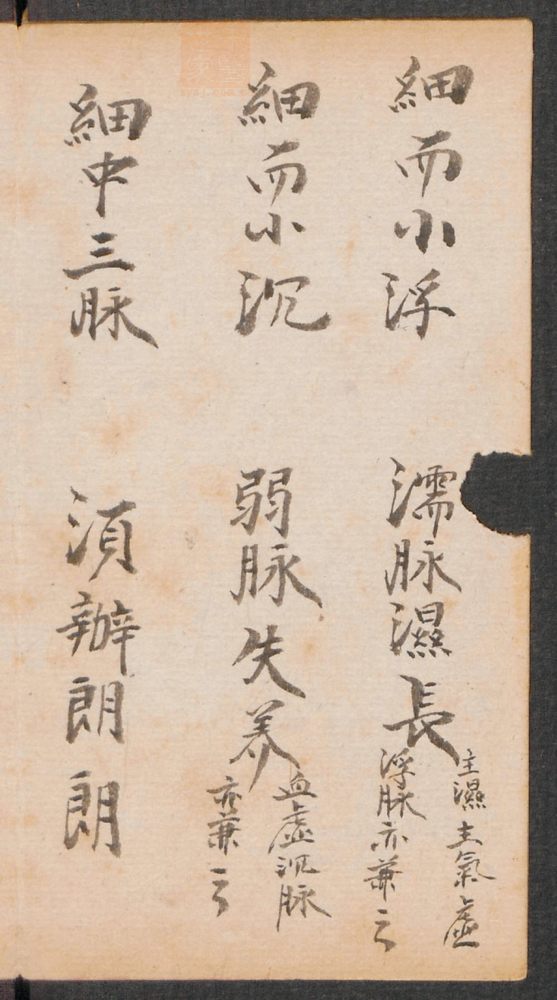 細而小浮　濡脉濕長
主濕主氣虛
浮脉亦兼云
細而小沉　弱脉失养
血虛沉脉
亦兼云
細中三脉　湏辦朗朗